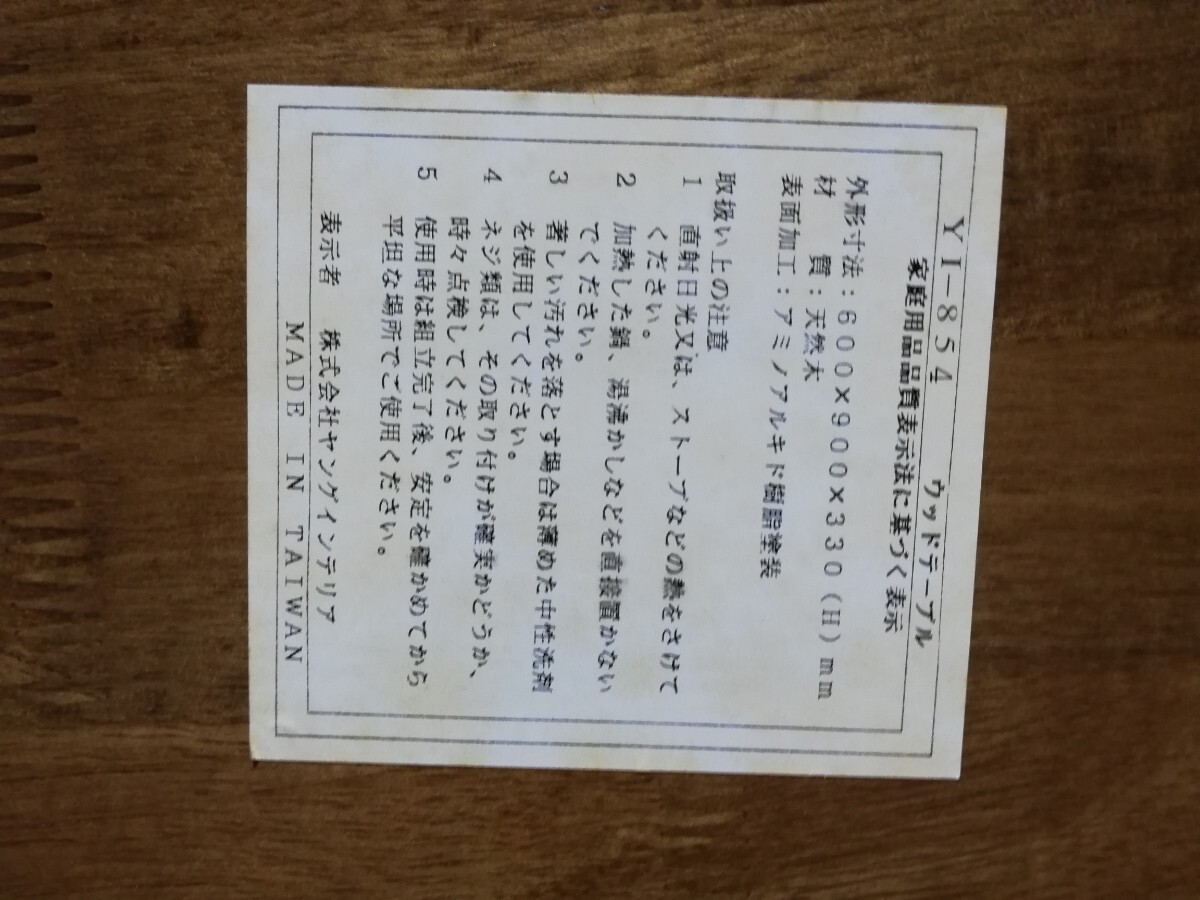 YI－854　ウッドテーブル
家庭用品品質表示法に基づく表示
外形寸法：600×900×330（H）mm
材　質：天然木
表面加工：アミノアルキド樹脂塗装
取扱い上の注意
1　直射日光又は、ストーブなどの熱をさけて
ください。
2　加熱した鍋、湯沸かしなどを直接置かない
でください。
3　著しい汚れを落とす場合は薄めた中性洗剤
を使用してください。
4　ネジ類は、その取り付けが確実かどうか、
時々点検してください。
5　使用時は組立完了後、安定を確かめてから
平坦な場所でご使用ください。
表示者　株式会社ヤングインテリア
MADE IN TAIWAN